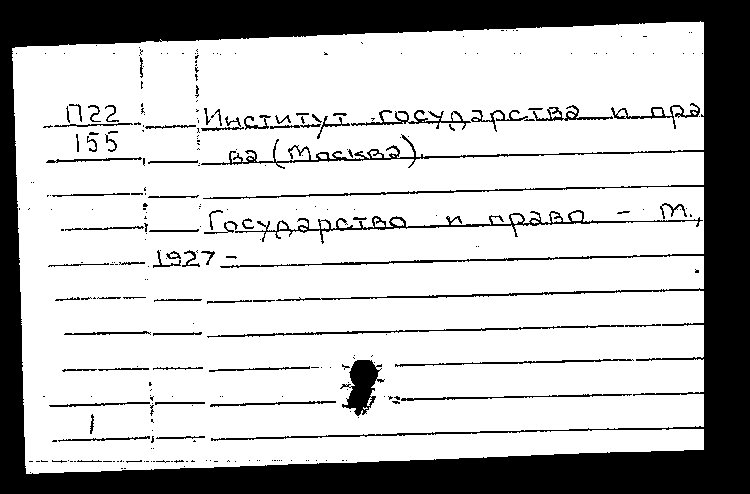 П22
155
Институт государства и пра
ва (Москва).
Государство и право – М.,
1927 –
1